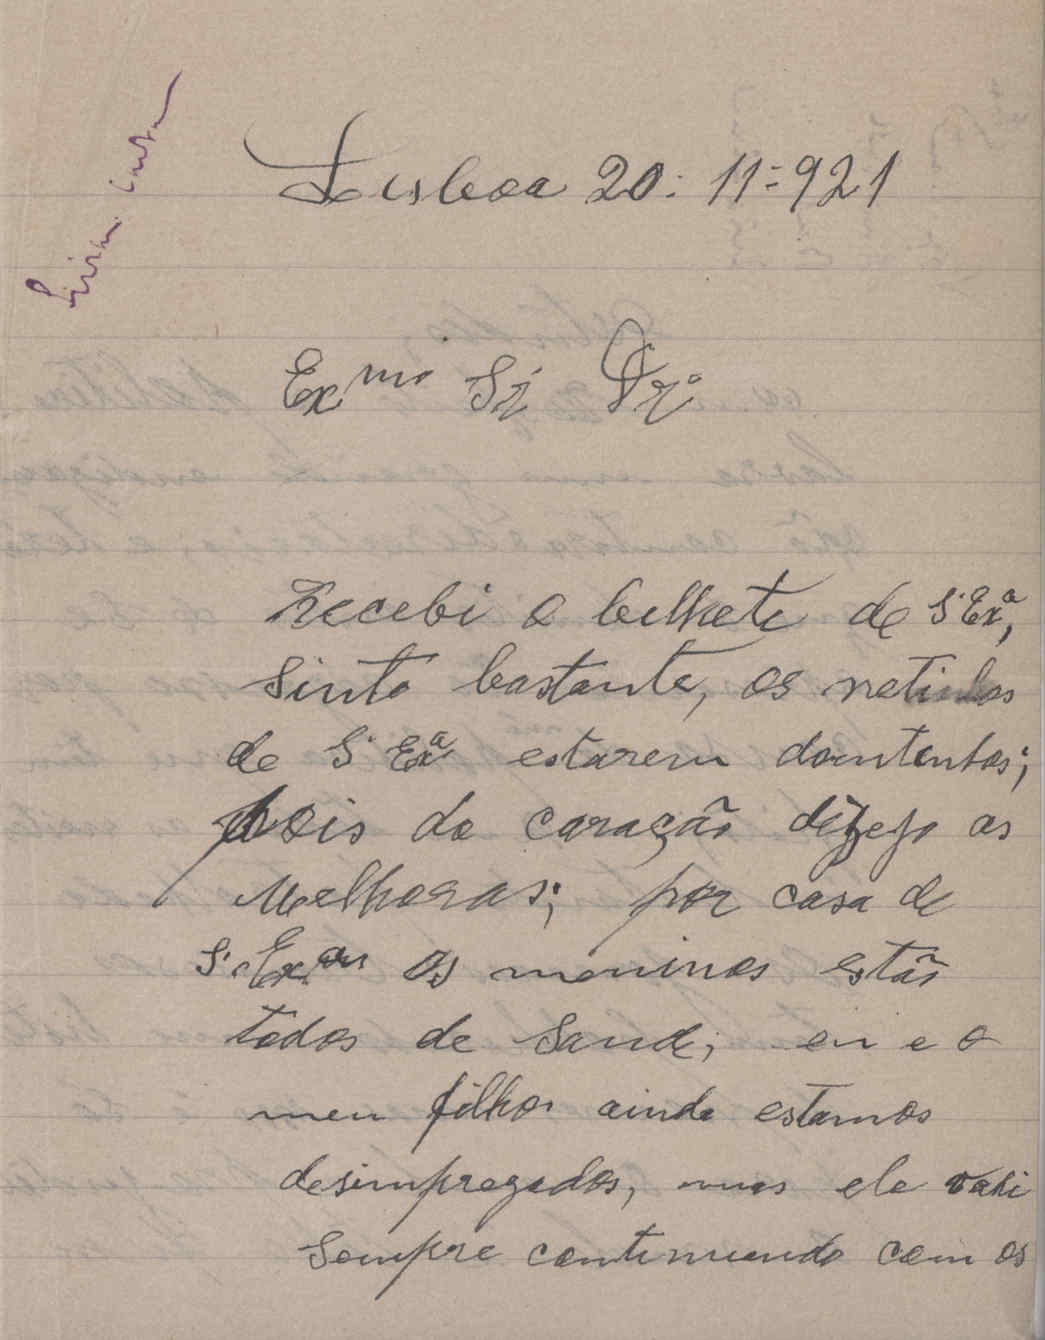 Lisboa 20: 11-921
Exmo Sr Dr.
Recebi o bilhete de S. Exª,
Sinto bastante, os netinhos
de S Exª estarem doentinhos;
pois do coração dezejo as
Melhoras; por casa de
S. Exas os meninos estão
todos de Saude, eu e o
meu filho ainda estamos
desimpregados, mas ele vahi
Sempre continuando com os